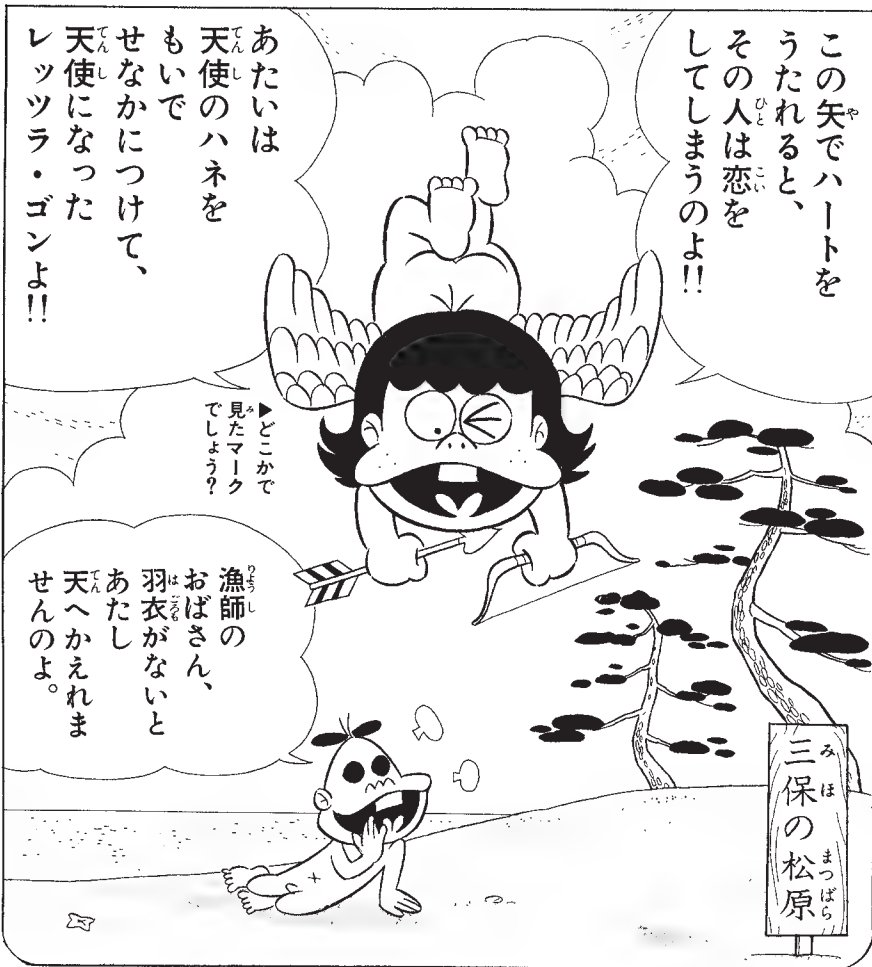 この矢でハートを
うたれると、
その人は恋を
してしまうのよ!!
あたいは
天使のハネを
もいで
せなかにつけて、
天使になった
レッツラ・ゴンよ!!
▶どこかで
見たマーク
でしょう?
漁師の
おばさん、
羽衣がないと
あたし
天へかえれま
せんのよ。
三保の松原